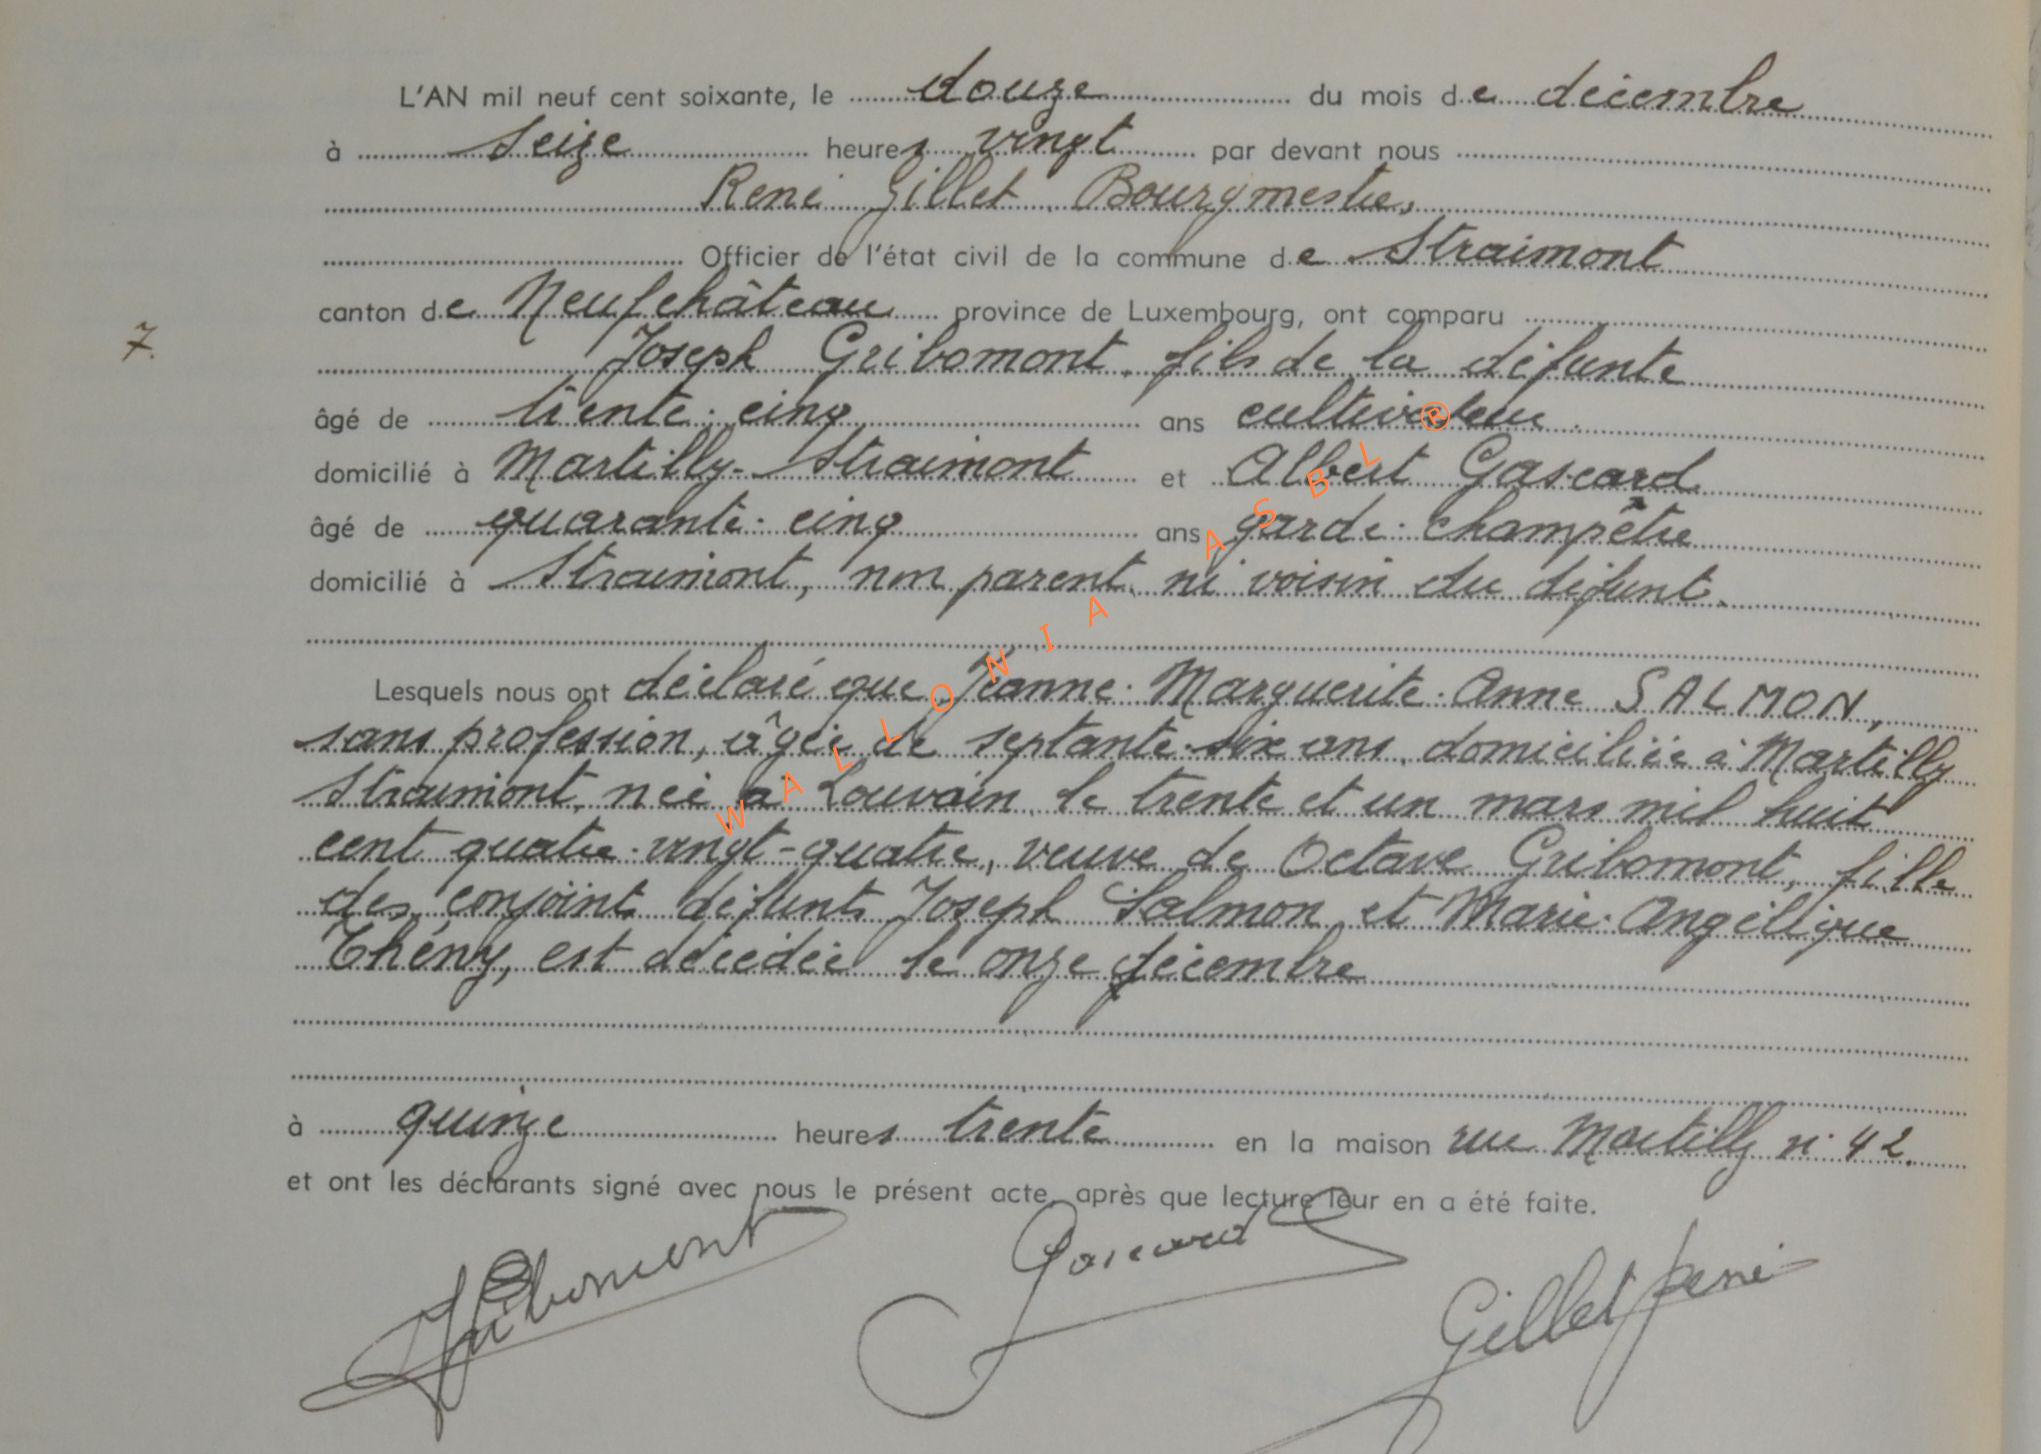 L'AN mil neuf cent soixante, le douze du mois de décembre
à seize heures vingt par devant nous
René Gillet Bourgmestre,
Officier de l'état civil de la commune de Straimont
canton de Neufchâteau province de Luxembourg, ont comparu
7. Joseph Gribomont, fils de la défunte
âgé de trente-cinq ans cultivateur.
domicilié à Martilly-Straimont et Albert Gascard
âgé de quarante-cinq ans garde-champêtre
domicilié à Straimont, non parent ni voisin du défunt.
Lesquels nous ont déclaré que Jeanne-Marguerite-Anne SALMON,
sans profession, âgée de septante-six ans, domiciliée à Martilly
Straimont, née à Louvain le trente et un mars mil huit
cent quatre-vingt-quatre, veuve de Octave Gribomont, fille
des conjoint défunts Joseph Salmon et Marie-Angélique
Thény, est décédée le onze décembre
à quinze heures trente en la maison rue Martilly n° 42.
et ont les déclarants signé avec nous le présent acte, après que lecture leur en a été faite.
JGribomont Gascard Gillet René
WALLONIA ASBL ®